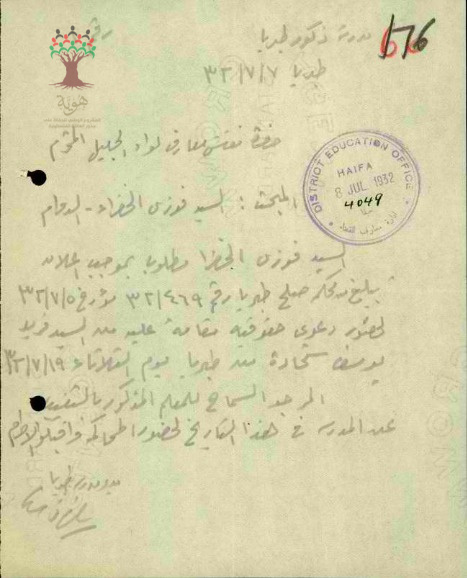 مدرسة ذكور طبريا
176
طبريا ٣٢/٧/٧
هوية
حضرة مفتش معارف لواء الجليل المحترم
DISTRICT EDUCATION OFFICE
HAIFA
8 JUL 1932
4049
المبحث : السيد فوزي الخضراء - الدوام
السيد فوزي الخضرا مطلوب بموجب اعلان
تبليغ من محكمة صلح طبريا رقم ٣٢/٤٦٩ مؤرخ ٣٢/٧/٥
لحضور دعوى حقوقية مقامة عليه من السيد فريد
يوسف شحادة من طبريا يوم الثلاثاء ٣٢/٧/١٩
المرجو السماح للمعلم المذكور بالتغيب
عن المدرسة في هذا التاريخ لحضور المحاكمة واقبلوا الاحترام
مدير مدرسة طبريا